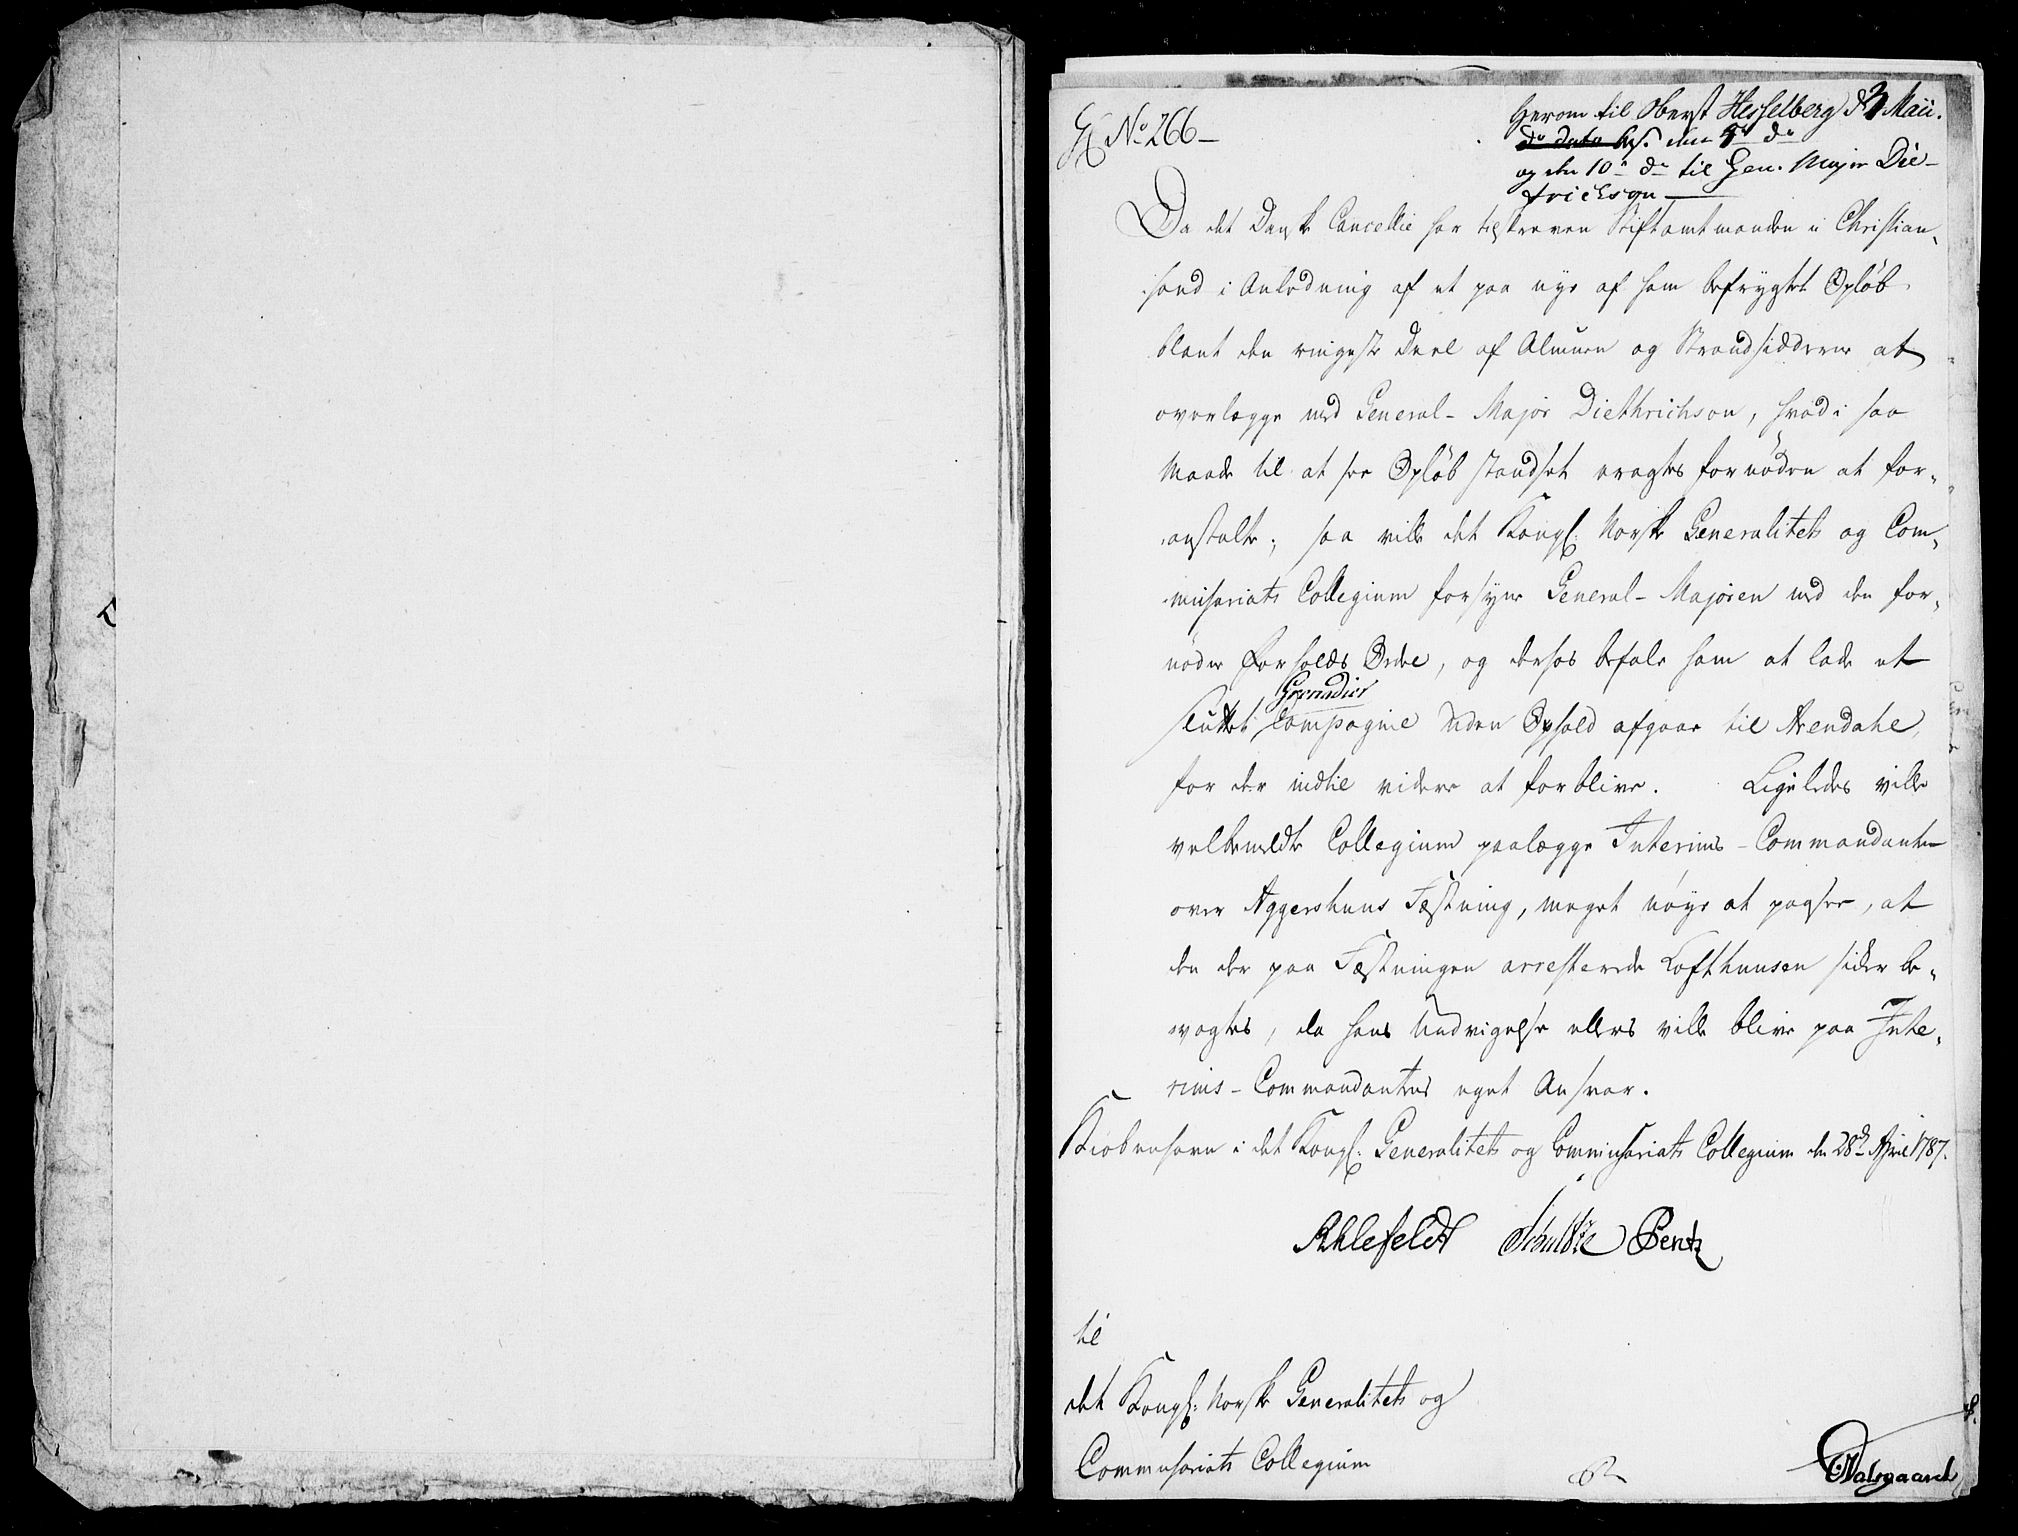 No 266 –
herom til Oberst Hesselberg d 3 Maii.
do dato
den 5te do
og den 10de do til Gen. Major Die-
trichson
Da det Danske Cancellie har tilskreven Stiftamtmanden i Christian-
sand i Anledning af et paa nye af ham befrygtet Opløb
blant den ringeste Deel af Almuen og Strandsidderne at
overlægge med General-Major Diethrichson, hvad i saa
Maade til at see Opløb standset eragtes fornøden at for-
anstalte; saa ville det Kongl: Norske Generalitets og Com-
missariats Collegium forsyne General-Majoren med den for-
nødne Forholds Ordre, og derhos befale ham at lade et
Grenadier
sluttet Compagnie uden Ophold afgaae til Arendahl,
for der indtil videre at forblive. Ligeledes ville
velbemeldte Collegium paalægge Interims-Commandanten
over Aggershuus Fæstning, meget nøye at paasee, at
den der paa Fæstningen arresterede Lofthuusen sikker be-
vogtes, da hans Undvigelse ellers ville blive paa Inte-
rims-Commandantens eget Ansvar.
Kiøbenhavn i det Kongl: Generalitets og Commissariats Collegium den 28de April 1787.
Ahlefeldt Schultze Bentz
til
det Kongl: Norske Generalitets og
Commissariats Collegium